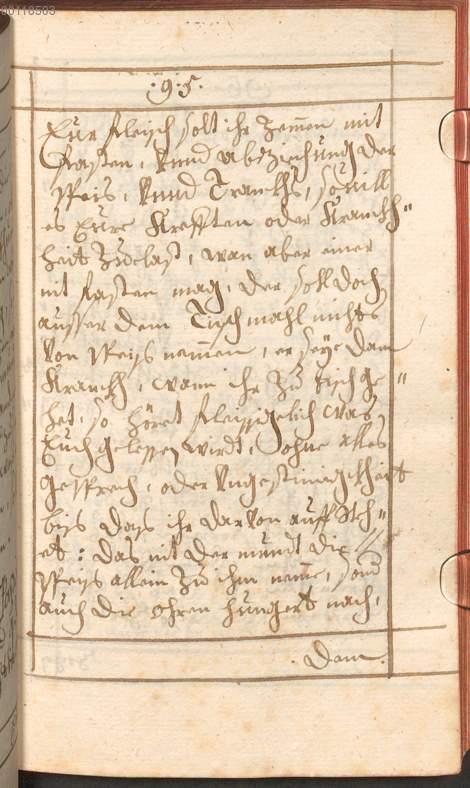 00110503
.9.5.
Eur fleisch solt ihr Zemen mit
Fasten, Vnnd abZiechung der
Speis, Vnnd Tranckhs, souill
es Eure Krefften oder Kranckh=
heit Zuelast, wan aber einer
nit fasten mag, der soll doch
ausser dem Tischmahl nichts
Von Speys nemen, er seye dan
Kranckh, wann ihr Zu tisch ge=
het, so höret fleissigelich was
Euch gelessen wirdt, ohne alles
gesprech, oder Vngestimigkheit
bys days ihr darVon auffsteh=
et: das nit der mundt die
Speys allein Zu ihm neme, sond
auch die ohren hungert nach,
. Dem.